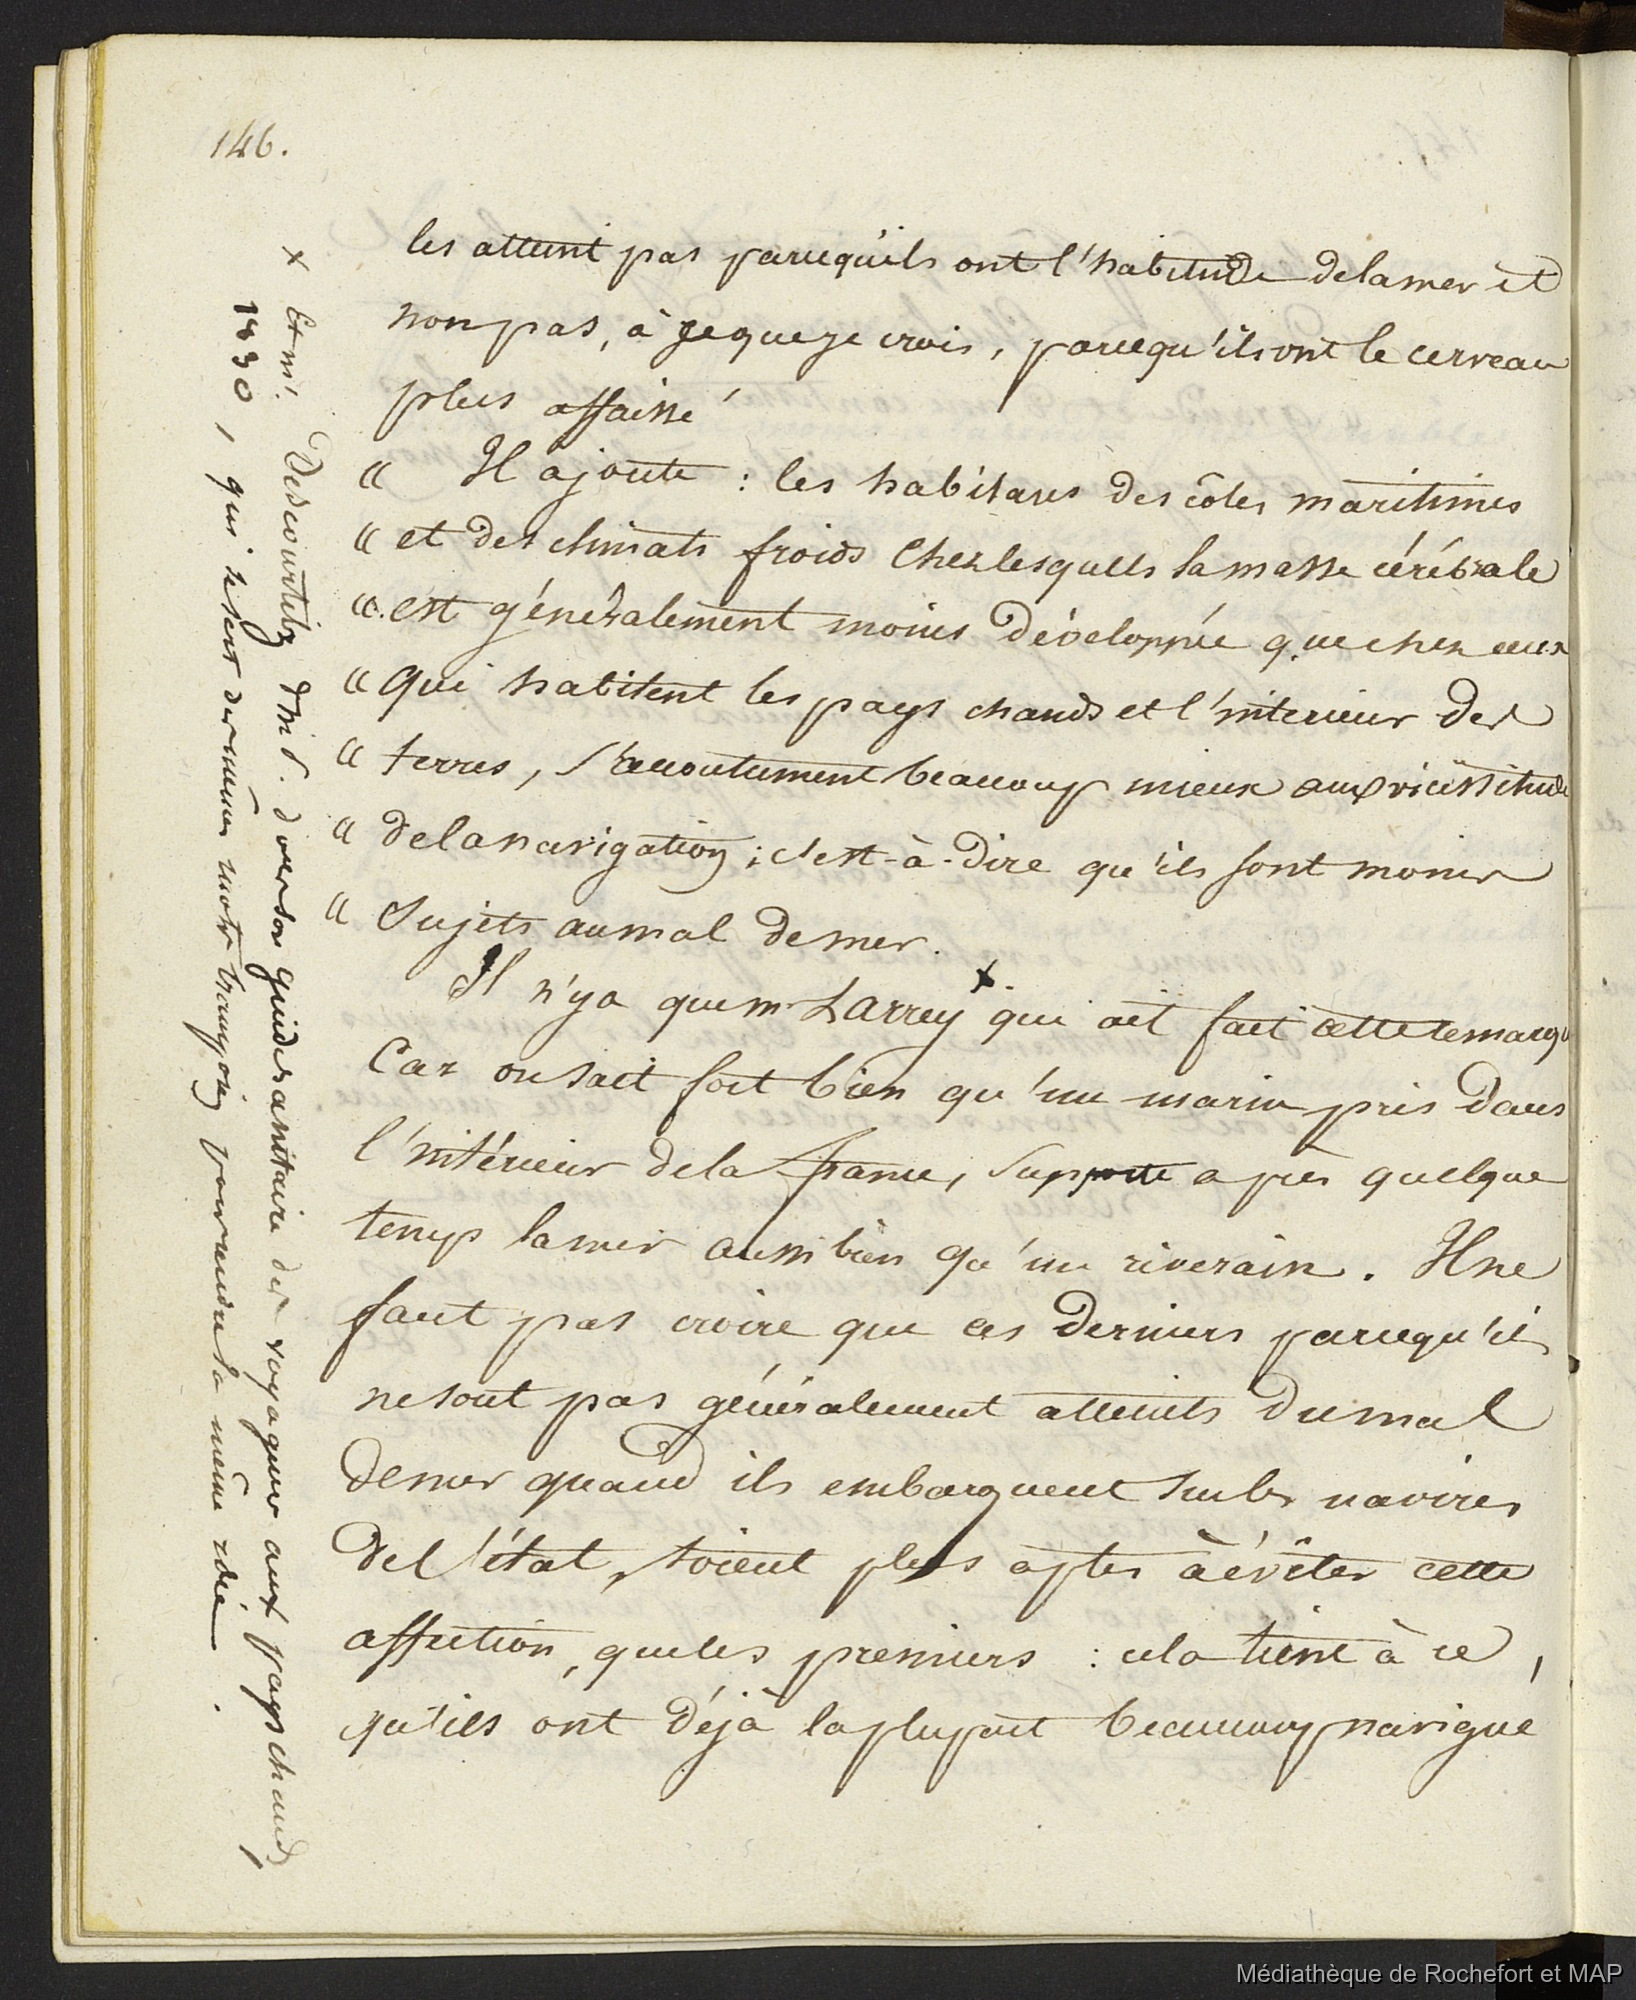 146.
les atteint pas parcequ'ils ont l'habitude de la mer et
non pas, à ce que je crois, parcequ'ils ont le cerveau
plus affaissé
« Il ajoute : les habitans des côtes maritimes
« et des climats froids chez lesquels la masse cérébrale
« est généralement moins développée que chez ceux
« qui habitent les pays chauds et l'intérieur des
« terres, s'accoutument beaucoup mieux aux vicissitudes
« de la navigation ; c'est-à-dire qu'ils sont moins
« sujets au mal de mer.
Il n'y a que mr Larrey x qui ait fait cette remarqu
Car on sait fort bien qu'un marin pris dans
l'intérieur de la france, supporte après quelque
temps la mer aussi bien qu'un riverain. Il ne
faut pas croire que ces derniers parcequ'ils
ne sont pas généralement atteints du mal
de mer quand ils embarquent sur les navires
de l'état, soient plus aptes à éviter cette
affection, que les premiers : cela tient à ce,
qu'ils ont déjà la plupart beaucoup navigué
x Et mr. Descourtilz dm P. dans son guide sanitaire des voyageurs aux pays chauds,
1830, qui se sert des mêmes mots François pour rendre la même idée.
Médiathèque de Rochefort et MAP